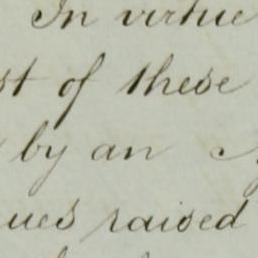 In virtue
st of these
by an
ues raised